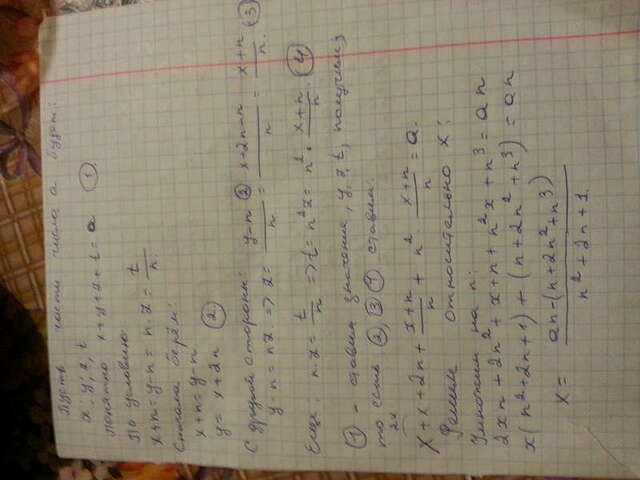 Пусть части числа a будут:
x; y; z, t
Понятно x+y+z+t=a ①
По условию
x+n=y-n=n·z=t/n.
Сначала берём:
x+n=y-n
y=x+2n ②
С другой стороны:
y-n=nz => z= y-n/n ②= x+2n-n/n = x+n/n. ③
Ещё: n·z= t/n => t=n²z=n²· x+n/n ④
① - ставим значение, y, z, t, получим
то есть ②, ③ ① ставим.
2x
x+x+2n+ x+n/n + n² x+n/n = a.
Решаем относительно x:
Умножим на n:
2xn+2n²+x+n+n²x+n³=an
x(n²+2n+1)+(n+2n²+n³)=an
x= an-(n+2n²+n³)/n²+2n+1.